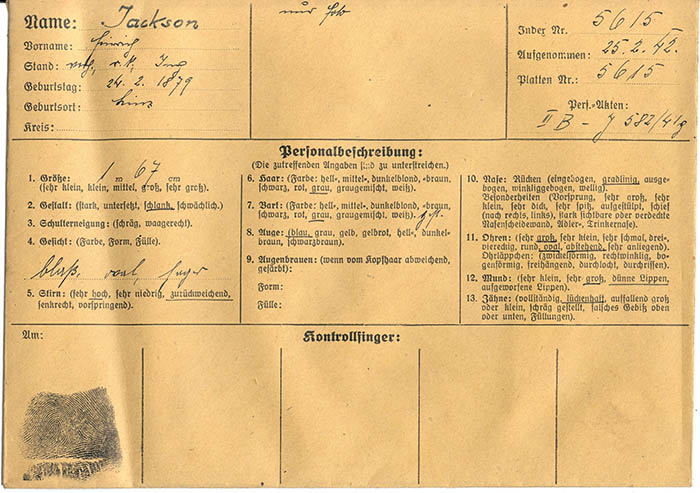 Name: Jackson
Vorname: Heinrich
Stand: verh., r. k., Ing
Geburtstag: 24. 2. 1879
Geburtsort: Linz
Kreis:
nur Foto
Index Nr. 5615
Aufgenommen: 25. 2. 42.
Platten Nr.: 5615
Pers.-Akten:
II B - J 582/41g
Personalbeschreibung:
(Die zutreffenden Angaben sind zu unterstreichen.)
1. Größe: 1 m 67 cm
(sehr klein, klein, mittel, groß, sehr groß).
2. Gestalt: (stark, untersetzt, schlank, schwächlich).
3. Schulterneigung: (schräg, waagerecht).
4. Gesicht: (Farbe, Form, Fülle).
blaß, oval, hager
5. Stirn: (sehr hoch, sehr niedrig, zurückweichend,
senkrecht, vorspringend).
6. Haar: (Farbe: hell-, mittel-, dunkelblond, -braun,
schwarz, rot, grau, graugemischt, weiß).
7. Bart: (Farbe: hell-, mittel-, dunkelblond, -braun,
schwarz, rot, grau, graugemischt, weiß).
8. Auge: (blau, grau, gelb, gelbrot, hell-, dunkel-
braun, schwarzbraun).
9. Augenbrauen: (wenn vom Kopfhaar abweichend,
gefärbt):
Form:
Fülle:
10. Nase: Rücken (eingebogen, gradlinig, ausge-
bogen, winkliggebogen, wellig).
Besonderheiten (Vorsprung, sehr groß, sehr
klein, sehr dick, sehr spitz, aufgestülpt, schief
(nach rechts, links), stark sichtbare oder verdeckte
Nasenscheidewand, Adler-, Trinkernase).
11. Ohren: (sehr groß, sehr klein, sehr schmal, drei-,
viereckig, rund, oval, abstehend, sehr anliegend).
Ohrläppchen: (zwickelförmig, rechtwinklig, bo-
genförmig, freihängend, durchlocht, durchrissen).
12. Mund: (sehr klein, sehr groß, dünne Lippen,
aufgeworfene Lippen).
13. Zähne: (vollständig, lückenhaft, auffallend groß
oder klein, schräg gestellt, falsches Gebiß oben
oder unten, Füllungen).
Am:
Kontrollfinger: